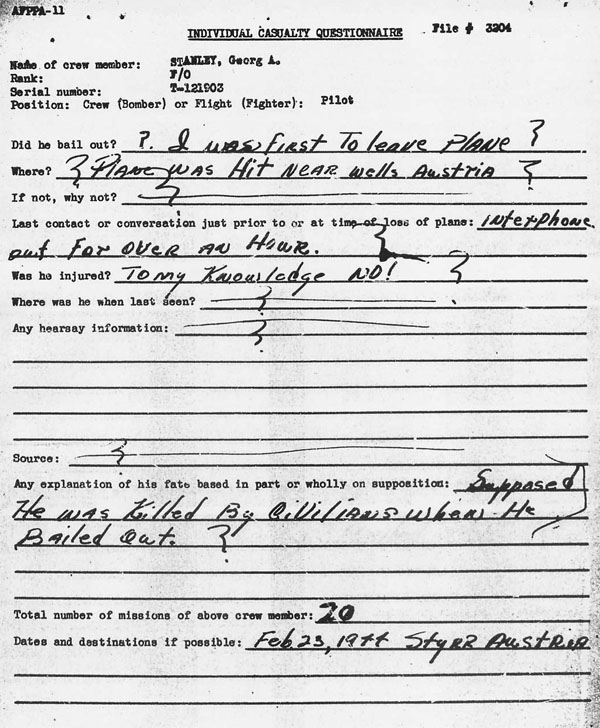 AFPPA-11
INDIVIDUAL CASUALTY QUESTIONNAIRE File # 3204
Name of crew member: STANLEY, Georg A.
Rank: F/O
Serial number: T-121903
Position: Crew (Bomber) or Flight (Fighter): Pilot
Did he bail out? ?. I was first To leave PLANE ?
Where? ? PLANE WAS Hit NEAR wells Austria ?
If not, why not?
Last contact or conversation just prior to or at time of loss of plane: Interphone
out FOR OVER AN HOUR.
Was he injured? To my Knowledge NO!
Where was he when last seen?
Any hearsay information:
Source:
Any explanation of his fate based in part or wholly on supposition: Supposed
He was Killed By CiViliANs when He
Bailed Out. ?
Total number of missions of above crew member: 20
Dates and destinations if possible: Feb 23, 1944 Styrr AUSTRIA